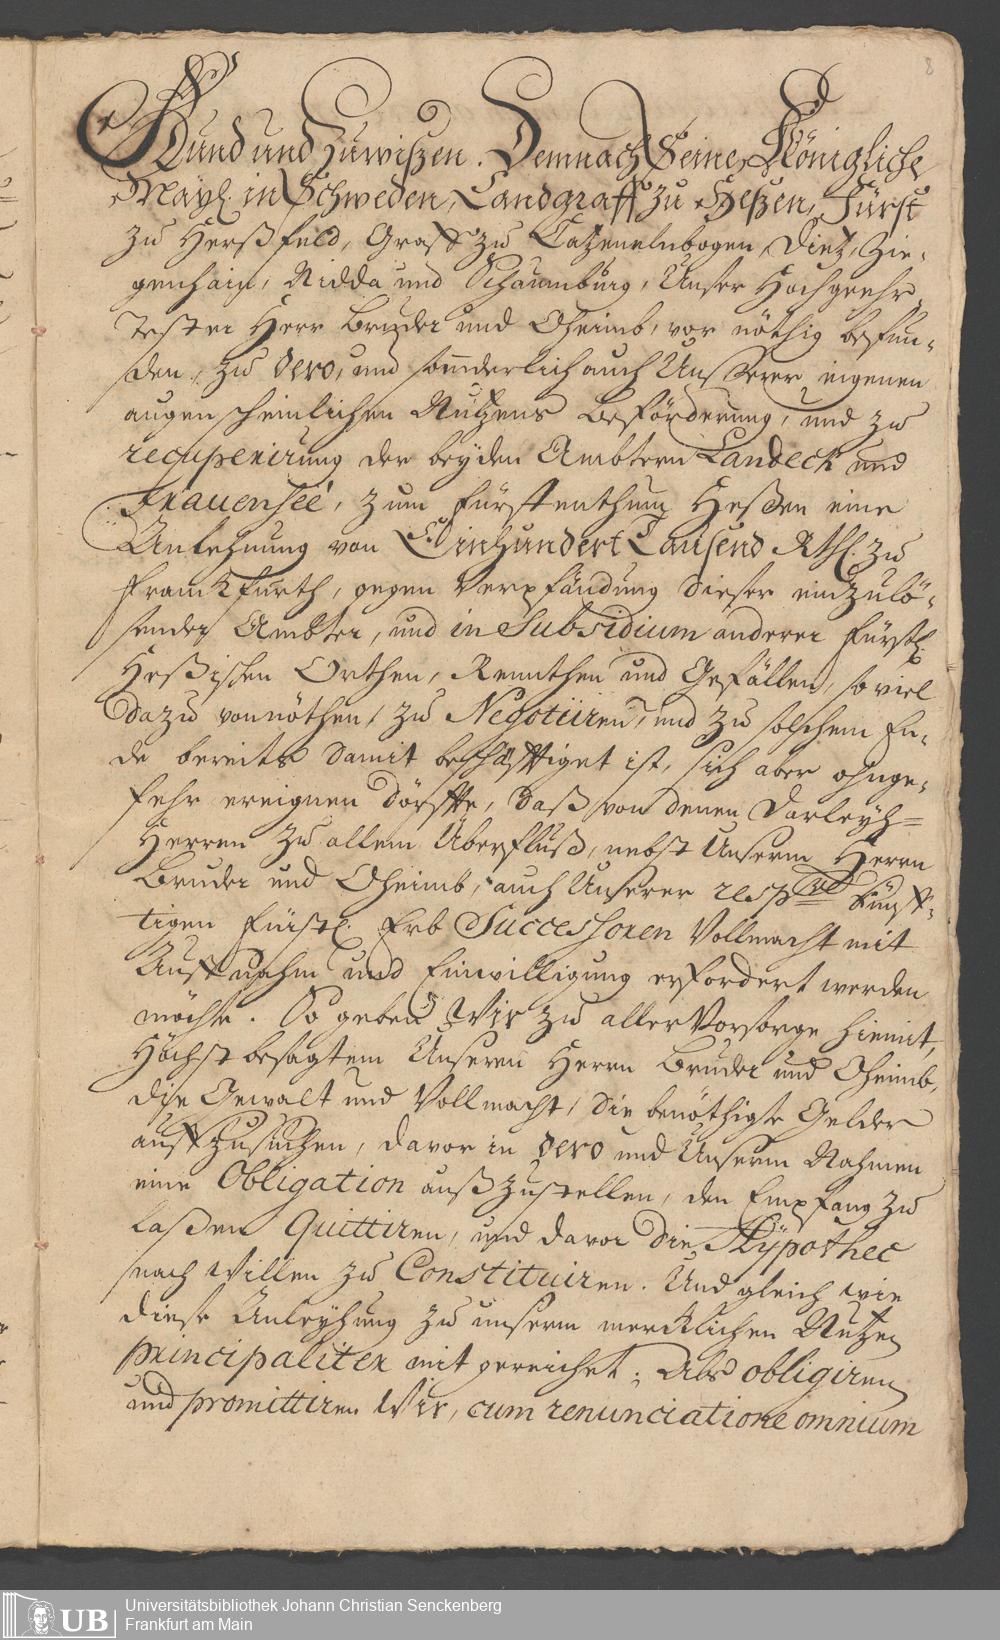 8
Kund und Zuwißen. Demnach Seine Königliche
Mayt. in Schweden, Landgraff zu Heßen, Fürst
zu Herßfeld, Graff zu Catzenelnbogen, Dietz, Zie-
genhain, Nidda und Schaumburg, Unser Hochgeehr-
tester Herr Bruder und Oheimb, vor nöthig befun-
den, zu dero, und sonderlich auch Unserer eigenen
augenscheinlichen Nutzens Beförderung, und zu
recuperirung der beyden Ambtern Landeck und
Frauenseé, zum Fürstenthum Heßen eine
Anlehnung von Einhundert Tausend Rthl. zu
Franckfurth, gegen Verpfändung dieser einzulö-
sender Ambter, und in Subsidium anderer Fürstl.
Heßischen Orthen, Rennthen und Gefällen, so viel
dazu vonnöthen, zu Negotiiren, und zu solchem En-
de bereits damit beschäfftiget ist, sich aber ohnge-
fehr ereignen dörffte, daß von denen Darleyh-
Herren zu allem Überfluß, nebst Unserm Herrn
Bruder und Oheimb, auch Unserer resp.ve künff-
tigen Fürstl. Erb Successoren Vollmacht mit
Auffnahm und Einwilligung erfordert werden
möchte. So geben Wir zu aller Vorsorge hiemit,
Höchstbesagtem Unseren Herrn Bruder und Oheimb,
die Gewalt und Vollmacht, die benöthigte Gelder
auffzusuchen, davor in dero und Unserm Nahmen
eine Obligation außzustellen, den Empfang zu
laßen Quittiren, und davor die Hÿpothec
nach Willen zu Constituiren. Und gleich wie
diese Anleyhung zu unserm mercklichen Nutzen
principaliter mit gereichet; Als obligiren
und promittiren Wir, cum renunciatione omnium
UB
Universitätsbibliothek Johann Christian Senckenberg
Frankfurt am Main